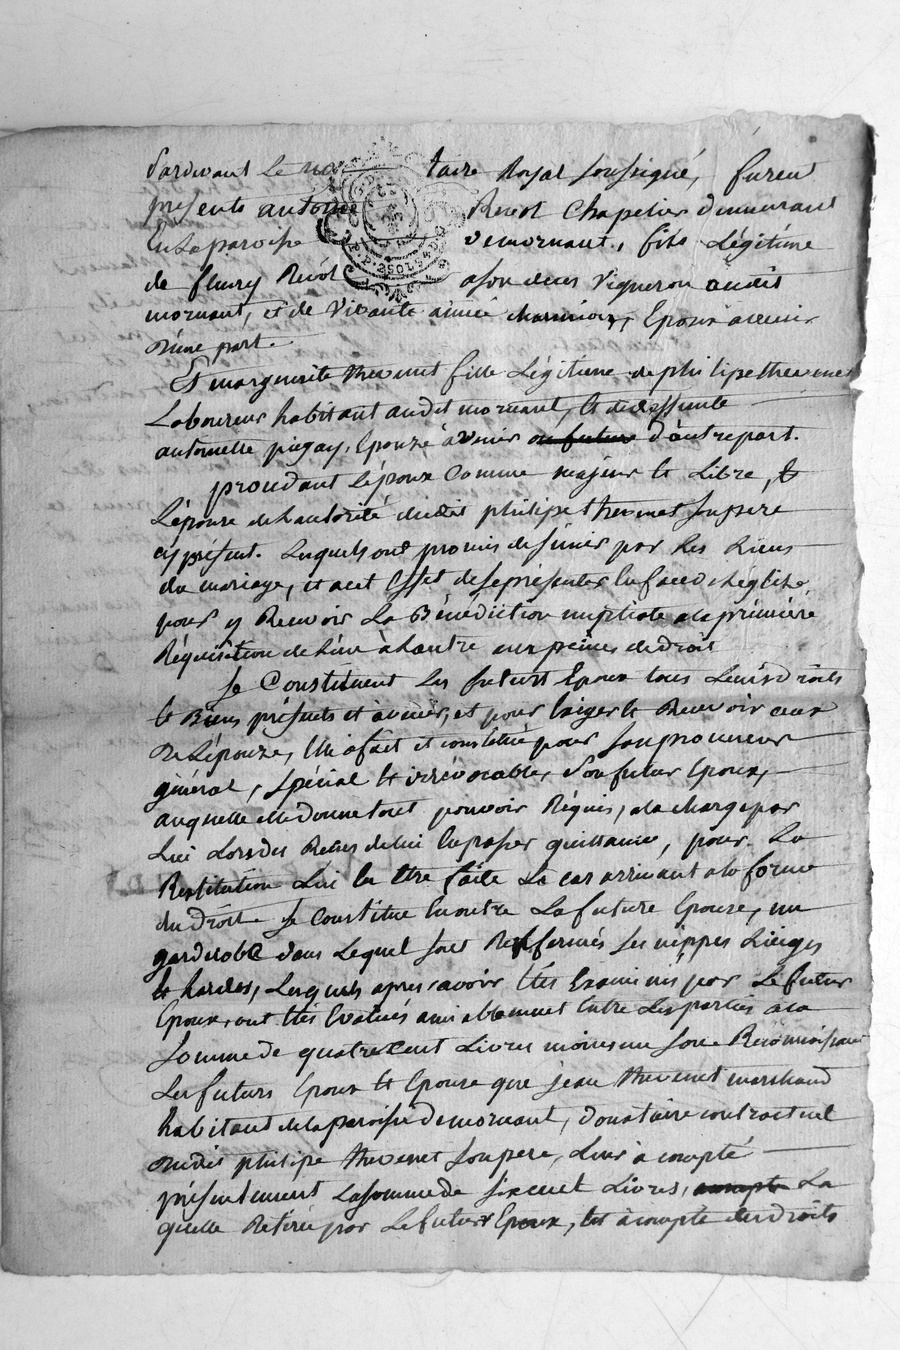 Pardevant Le no taire Royal soussigné, furent
présents antoine Benot Chapelier demeurant
En La paroisse de mornant, fils Légitime
de fleury Benot a son deces vigneron audit
mornant, et de vivante aimée charmion, Epoux avenir
d'une part.
Et marguerite thevenet fille Légitime de philipe thevenet
Laboureur habitant audit mornant, et de deffunte
antoinette pugay, Epouze à venir ou future d'autre part.
procedant L'époux Comme majeur et Libre, et
L'épouse de L'autorité dudit philipe thevenet son pere
cy présent. Lesquels ont promis de s'unir par les Liens
du mariage, et a cet Effet de se présenter En face d'église,
pour y Recevoir La Bénédiction nuptiale a la première
Réquisition de L'un à L'autre aux peines de droit
Se Constituent Les futurs Epoux tous Leurs Droits
et Biens présents et à venir, et pour Exiger et Recevoir ceux
de L'épouze, Elle a fait et constitué pour son procureur
général, spécial et irrévocable, son futur Epoux,
auquel elle donne tout pouvoir Requis, a la charge par
Lui Lors des Reçus de lui En passer quittance, pour La
Restitution Lui En Etre faite Le cas arrivant a la forme
du droit. Se Constitue En outre La future Epouse, un
garderobe dans Lequel sont Renfermés ses nippes Linges
et hardes, Lesquels apres avoir Etés Examinés par Le futur
Epoux, ont Etés Evalués amiablement Entre Les parties a la
somme de quatre cent Livres moins un sou. Reconnoissant
Les futurs Epoux et Epouse que jean thevenet marchand
habitant de La paroisse de mornant, donataire contractuel
dudit philipe thevenet son pere, Leur a compté
présentement La somme de six cent Livres, compte La
quelle Retirée par Le futur Epoux, Est à compte des droits